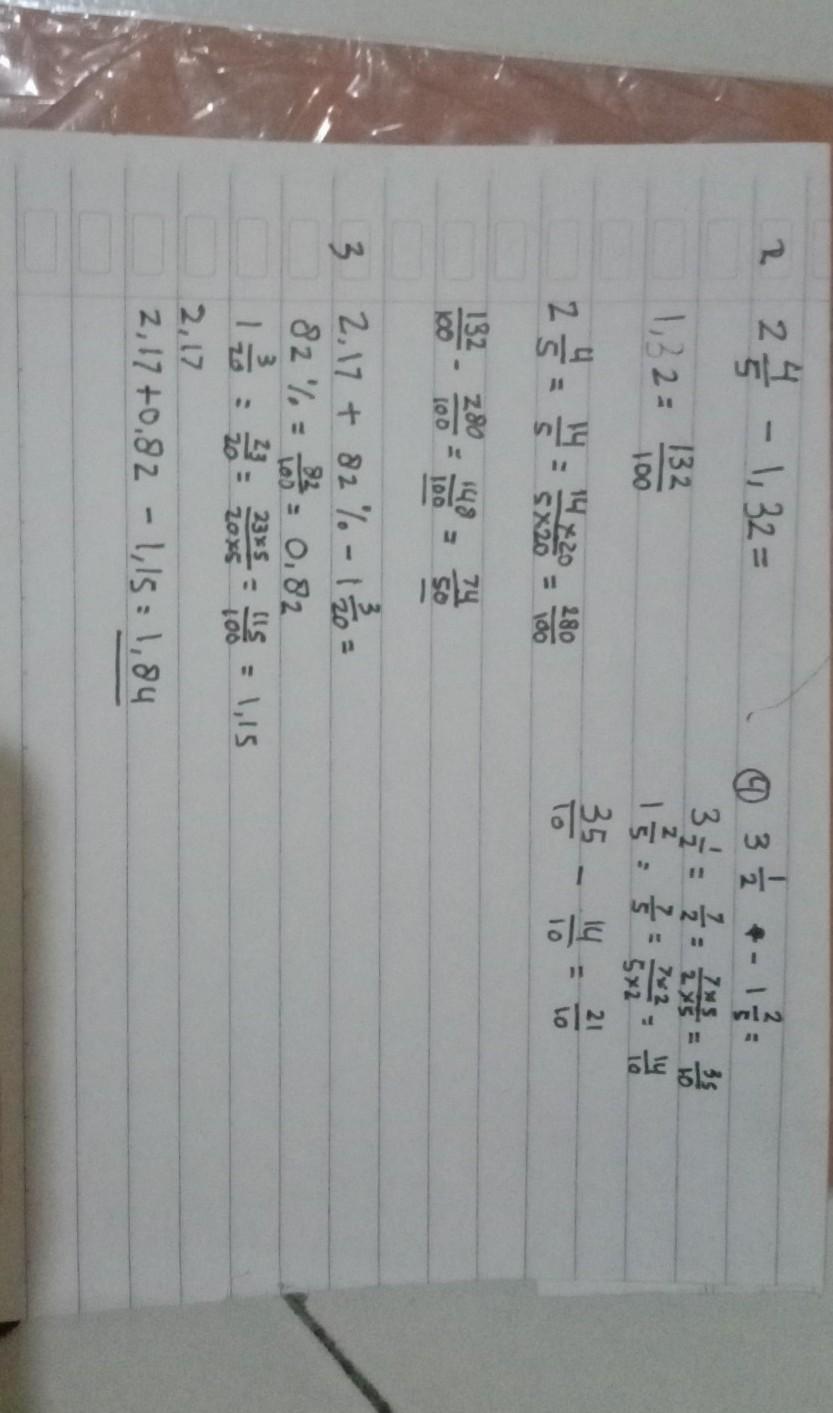 2 2 4/5 - 1,32 =
1,32 = 132/100
2 4/5 = 14/5 = 14×20/5×20 = 280/100
132/100 - 280/100 = 148/100 = 74/50
3 2,17 + 82 % - 1 3/20 =
82 % = 82/100 = 0,82
1 3/20 = 23/20 = 23×5/20×5 = 115/100 = 1,15
2,17
2,17 + 0,82 - 1,15 = 1,84
④ 3 1/2 - 1 2/5 =
3 1/2 = 7/2 = 7×5/2×5 = 35/10
1 2/5 = 7/5 = 7×2/5×2 = 14/10
35/10 - 14/10 = 21/10